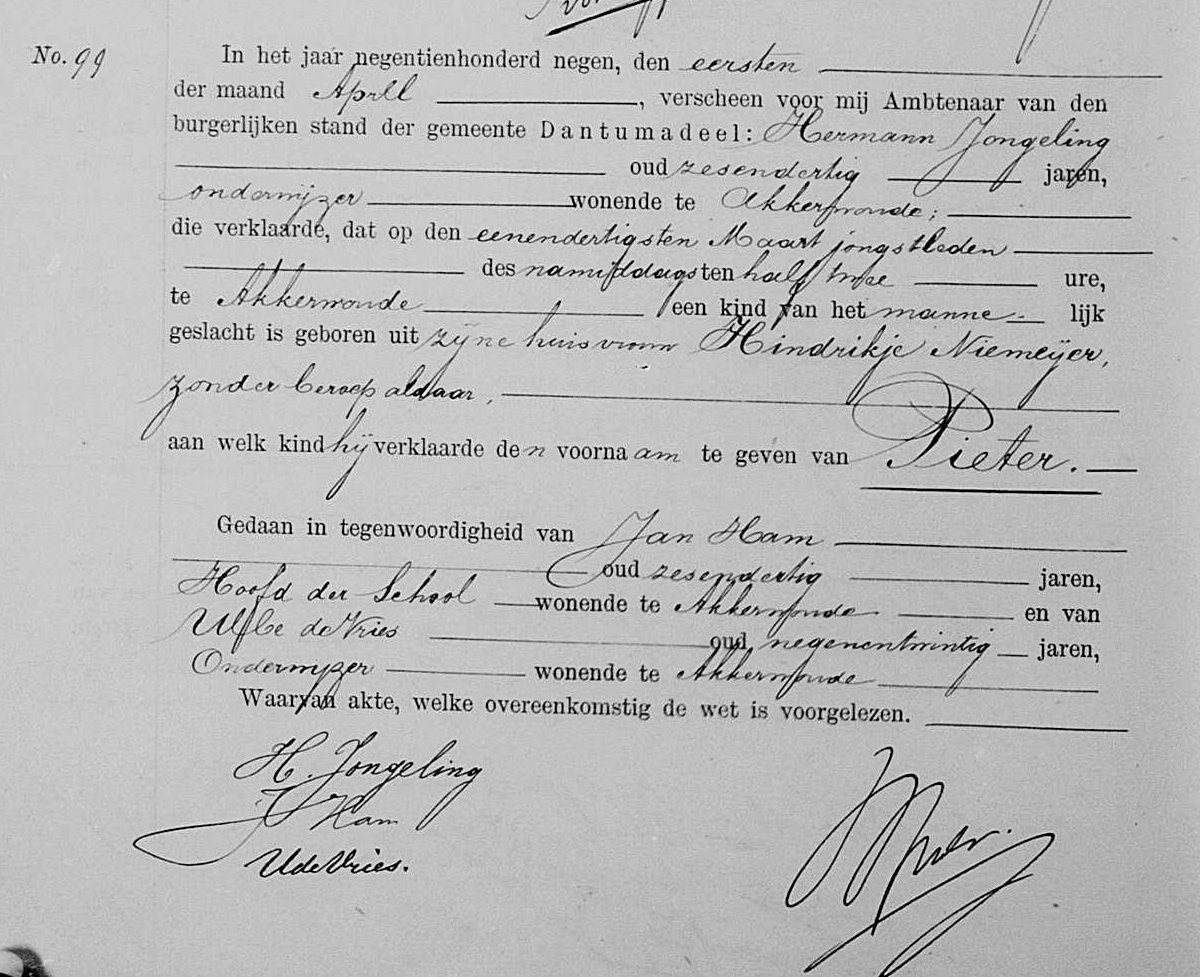 No. 99
In het jaar negentienhonderd negen, den eersten
der maand April, verscheen voor mij Ambtenaar van den
burgerlijken stand der gemeente Dantumadeel: Hermann Jongeling
oud zesendertig jaren,
onderwijzer wonende te Akkerwoude;
die verklaarde, dat op den eenendertigsten Maart jongstleden
des namiddags ten half twee ure,
te Akkerwoude een kind van het mannelijk
geslacht is geboren uit zijne huisvrouw Hindrikje Niemeijer,
zonder beroep aldaar,
aan welk kind hij verklaarde den voornaam te geven van Pieter.
Gedaan in tegenwoordigheid van Jan Ham
oud zesendertig jaren,
Hoofd der School wonende te Akkerwoude en van
Ulbe de Vries oud negenentwintig jaren,
Onderwijzer wonende te Akkerwoude
Waarvan akte, welke overeenkomstig de wet is voorgelezen.
H. Jongeling
J Ham
U de Vries.